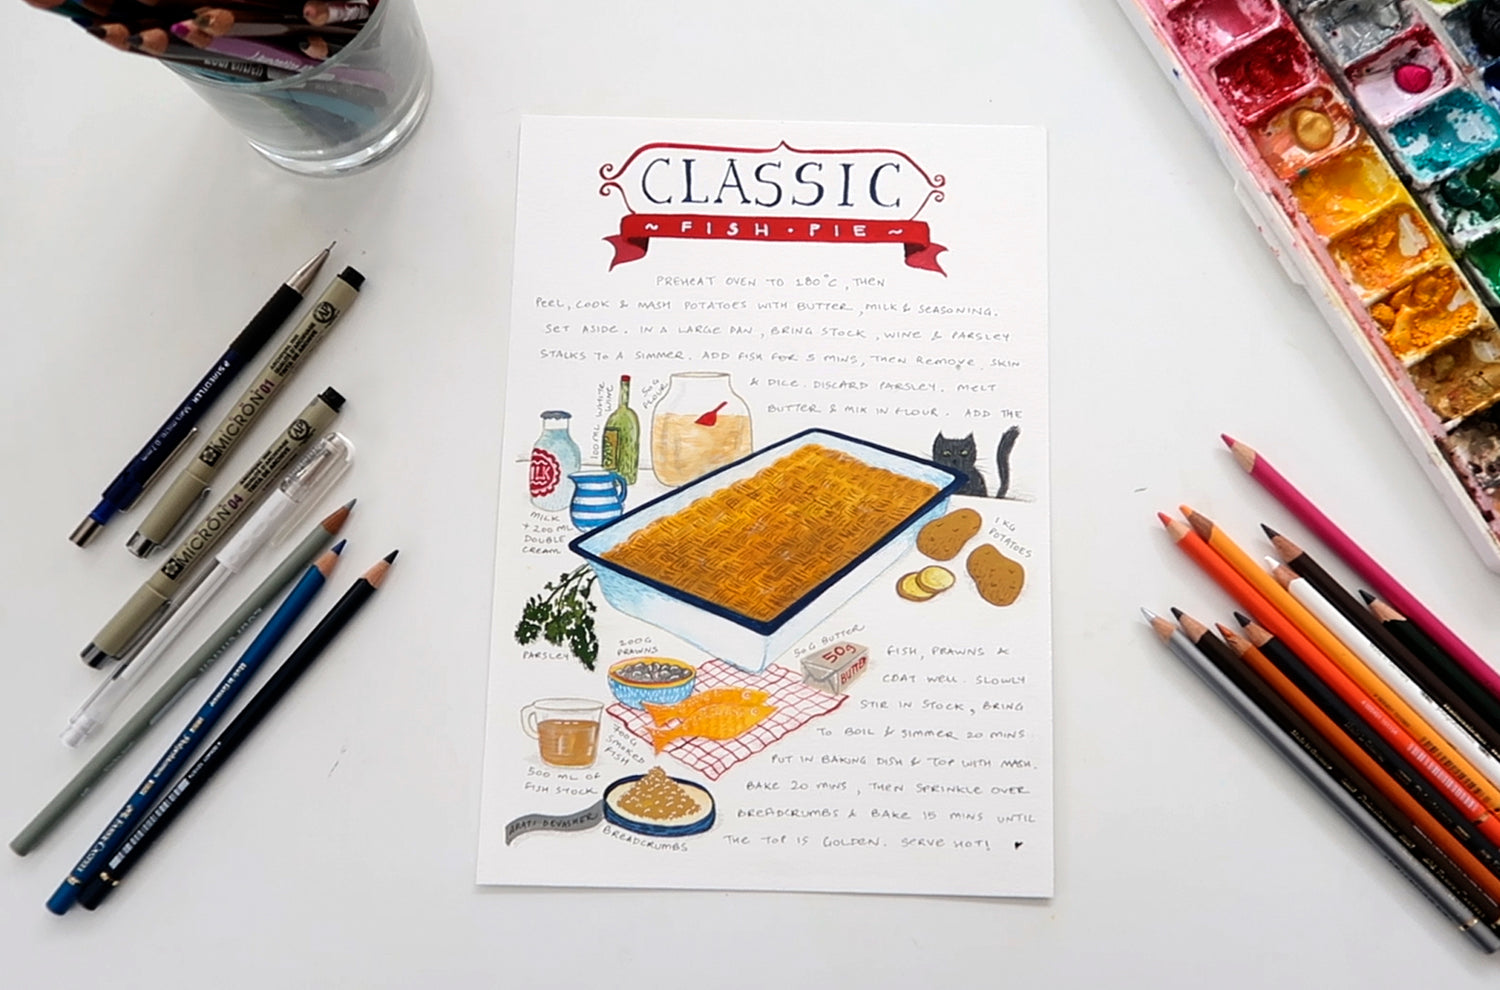 CLASSIC
~ FISH · PIE ~
PREHEAT OVEN TO 180°C, THEN
PEEL, COOK & MASH POTATOES WITH BUTTER, MILK & SEASONING.
SET ASIDE. IN A LARGE PAN, BRING STOCK, WINE & PARSLEY
STALKS TO A SIMMER. ADD FISH FOR 5 MINS, THEN REMOVE SKIN
& DICE. DISCARD PARSLEY. MELT
BUTTER & MIX IN FLOUR. ADD THE
100 ML WHITE
WINE
50G
FLOUR
MILK
MILK
+ 200 ML
DOUBLE
CREAM
1 KG
POTATOES
PARSLEY
200G
PRAWNS
50G BUTTER
50g
BUTTER
FISH, PRAWNS &
COAT WELL. SLOWLY
STIR IN STOCK, BRING
TO BOIL & SIMMER 20 MINS.
PUT IN BAKING DISH & TOP WITH MASH.
BAKE 20 MINS, THEN SPRINKLE OVER
BREADCRUMBS & BAKE 15 MINS UNTIL
THE TOP IS GOLDEN. SERVE HOT!
400G
SMOKED
FISH
500 ML OF
FISH STOCK
ARATI DEVASHER
BREADCRUMBS
STAEDTLER Mars micro 0.7mm
MICRON 01
MICRON 04